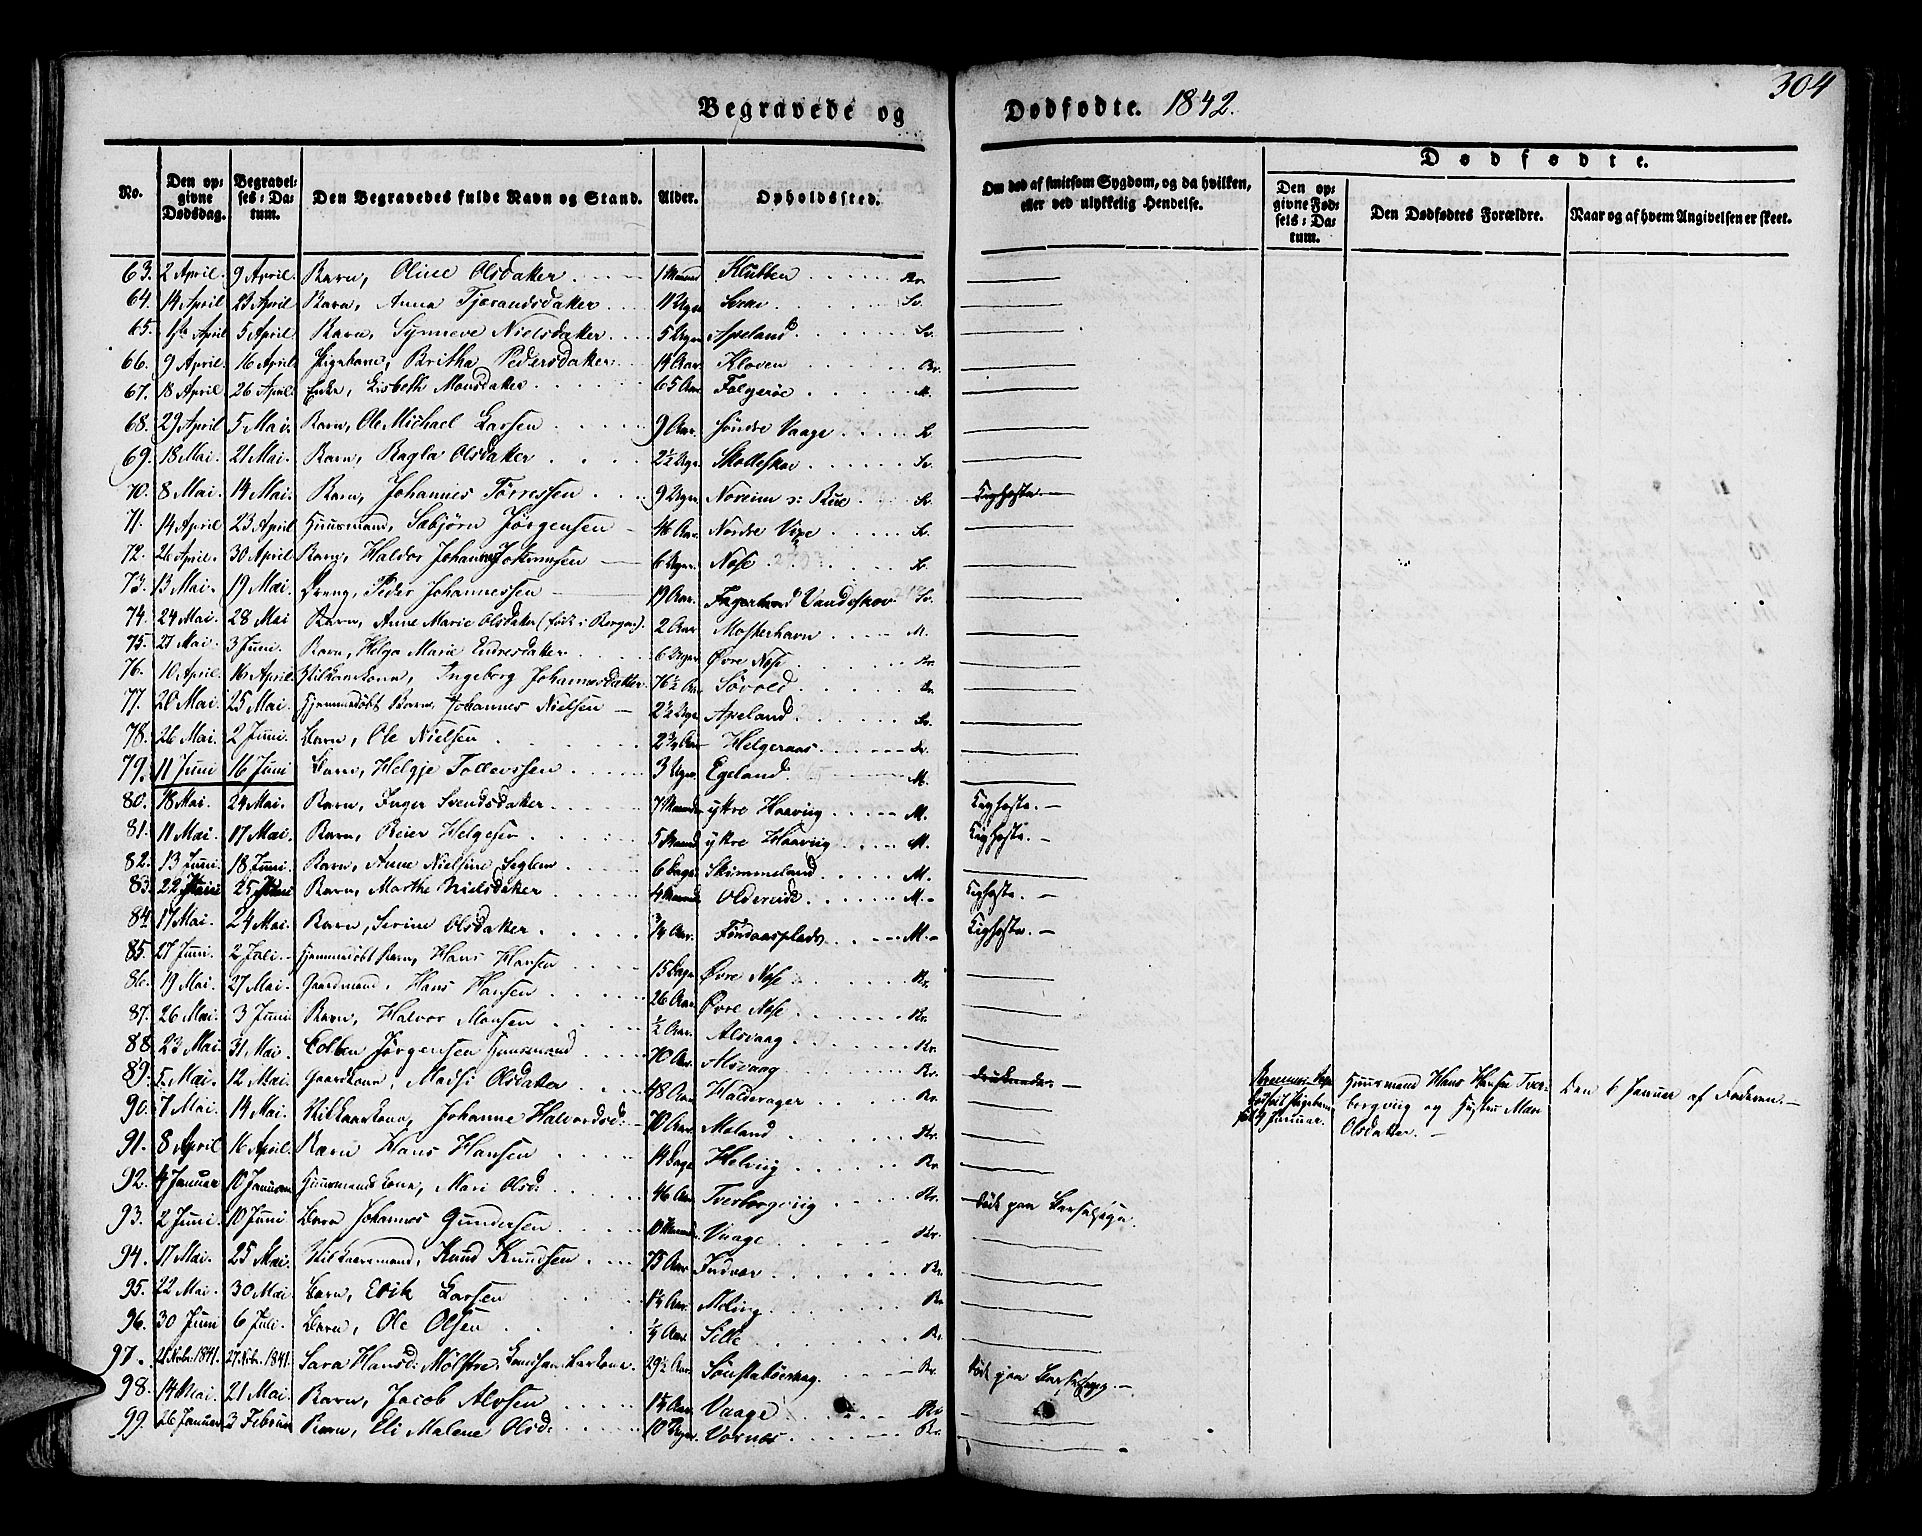 304
Begravede og Dødfødte. 1842.
No. Den opgivne Dødsdag. Begravelses-Datum. Den Begravedes fulde Navn og Stand. Alder. Opholdssted. Om død af smitsom Sygdom, og da hvilken, eller ved ulykkelig Hendelse.
Dødfødte.
Den opgivne Fødsels-Datum. Den Dødfødtes Forældre. Naar og af hvem Angivelsen er skeet.
63. 2 April. 9 April. Barn, Oline Olsdatter 1 Maaned Klubben
64. 14 April 21 April. Barn, Anna Tjerandsdatter 11 Uger Sv.
65. April 5 April. Barn, Synneve Nielsdatter 5 Uger Apeland Sv.
66. 9 April. 16 April Pigebarn, Britha Pedersdatter 14 Aar Kloven Br.
67. 18 April 26 April. Enke, Lisbeth Monsdatter 65 Aar Folgerøe M.
68. 29 April 5 Mai. Barn, Ole Michael Larsen 9 Aar. søndre Vaage
69. 18 Mai. 21 Mai. Barn, Ragla Olsdatter 2½ Uger. Skotteskov Sv.
70. 8 Mai. 14 Mai. Barn, Johannes Tørressen 9 Uger Noreim Kighoste.
71. 14 April 23 April Huusmand, Sæbjørn Jørgensen 46 Aar. Nordre Vige
72. 26 April. 30 April Barn, Haldor Johannessen 6 Uger. Nose
73. 13 Mai. 19 Mai. Dreng, Peder Johannessen 19 Aar. Vandeskov Sv.
74. 24 Mai. 28 Mai Barn, Anne Marie Olsdatter (født i Bergen). 2 Aar Mosterhavn M.
75. 27 Mai. 3 Juni. Barn, Helga Marie Endresdatter 6 Uger Øvre Nose
76. 10 April. 16 April. Vilkaarskone, Ingeborg Johannesdatter 76½ Aar Søvold Br.
77. 20 Mai. 25 Mai. Hjemmedøbt Barn, Johannes Nielsen 2½ Uger Apeland Sv.
78. 26 Mai. 2 Juni. Barn, Ole Nielsen 2¾ Aar Helgeraas
79. 11 Juni 16 Juni Barn, Helgje Tollevssen 3 Uger Egeland M.
80. 18 Mai. 24 Mai. Barn, Inger Svendsdatter 7 Maaneder ytre Haaviig M. Kighoste.
81. 11 Mai 17 Mai. Barn, Reier Helgesen 5 Maaned ytre Haaviig M. Kighoste.
82. 13 Juni. 18 Juni. Barn, Anne Nielsine Seglem 6 Dage Skimmeland M.
83. 22 Juni 25 Juni Barn, Marthe Nielsdatter 4 Maaneder Oldereide M. Kighoste.
84. 17 Mai. 24 Mai. Barn, Serine Olsdatter ¾ Aar. Føndaasplads M. Kighoste.
85. 27 Juni. 2 Juli. Hjemmedøbt Barn, Hans Hansen 15 Dage Øvre Nose
86. 19 Mai. 27 Mai. Gaardmand, Hans Hansen 26 Aar. Øvre Nose Br.
87. 26 Mai. 3 Juni Barn, Halvor Monsen ½ Aar. Alsvaag
88. 23 Mai. 31 Mai. Colben Jørgensen Huusmand 70 Aar. Alsvaag Br.
89. 5 Mai. 12 Mai. Gaardkone, Madsi Olsdatter 48 Aar. Haldorager Br. druknede.
90. 7 Mai. 14 Mai. Vilkaarskone, Johanne Halvordsd: 70 Aar. Meland Br.
91. 8 April 16 April. Barn Hans Hansen 14 Dage Helvig Br.
92. 4 Januar 10 Januar Huusmandskone, Mari Olsd: 46 Aar Tverborgviig Br. død paa Barselseng.
93. 2 Juni. 10 Juni Barn Johannes Gundersen 10 Maaned. Vaage Br.
94. 17 Mai. 25 Mai. Vilkaarsmand, Knud Knudsen 75 Aar Indvær Br.
95. 22 Mai. 30 Mai. Barn, Erik Larsen 1½ Aar. Meling Br.
96. 30 Juni 6 Juli. Barn, Ole Olsen ¼ Aar. Sille Br.
97. 21 Nobr. 1841. 27 Nobr. 1841. Sara Hansd: Mølstre, 29½ Aar Sønstabøevaag Br. død paa Barselseng.
98. 14 Mai. 21 Mai. Barn, Jacob Alvsen 1½ Aar Vaage Br.
99. 26 Januar 3 Februar Barn, Eli Malene Olsd: 10 Uger. Vornæs Br.
Januar. Huusmand Hans Hansen Tverborgviig og Hustru Mari Olsdatter. Den 6 Januar af Faderen.